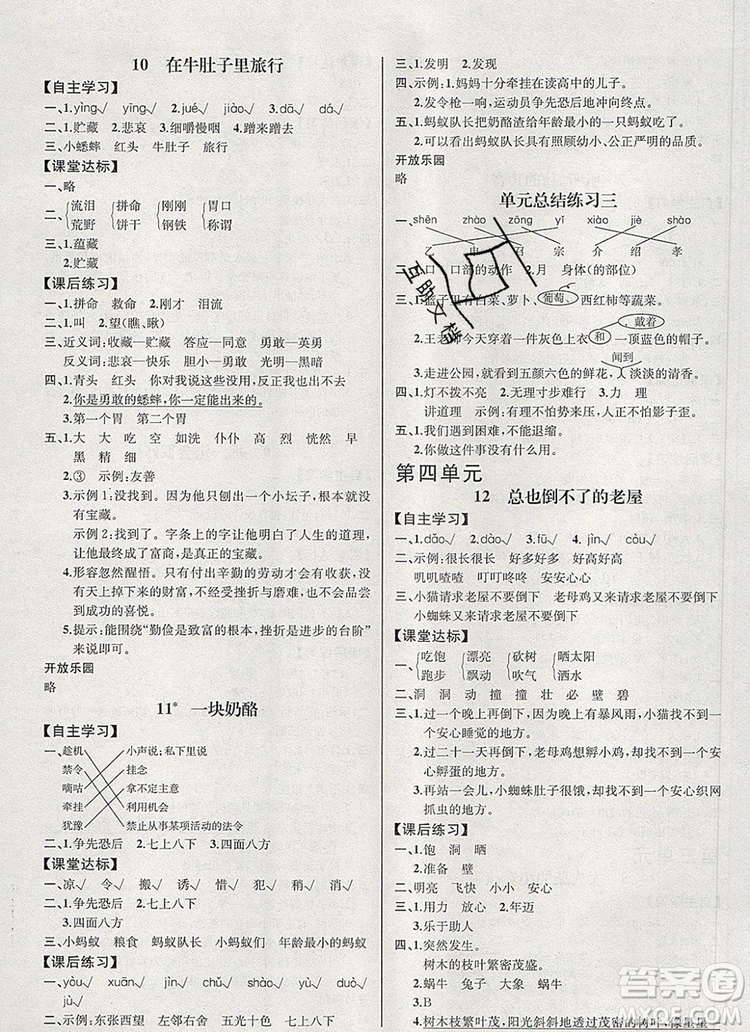 10 在牛肚子里旅行
【自主学习】
一、1.yìng√ yīng√ 2.jué√ jiào√ 3.dā√ dá√
二、1.贮藏 2.悲哀 3.细嚼慢咽 4.蹭来蹭去
三、小蟋蟀 红头 牛肚子 旅行
【课堂达标】
一、略
二、流泪 拼命 刚刚 胃口
荒野 饼干 钢铁 称谓
三、1.蕴藏
2.贮藏
【课后练习】
一、1.拼命 救命 2.刚才 泪流
二、1.叫 2.望(瞧、瞅)
三、近义词:收藏—贮藏 答应—同意 勇敢—英勇
反义词:悲哀—快乐 胆小—勇敢 光明—黑暗
四、1.青头 红头 你对我说这些没有用啊
2.你是勇敢的蟋蟀,你一定能出来的。
3.第一个胃 第二个胃
五、1.大 大 吃 空 如洗 仆仆 高 烈 恍然 早
黑 精 细
2.③ 示例:友善
3.示例1:没找到。因为他只刨出一个小坛子,并没有
宝藏。
示例2:找到了。字条上的字让他明白了人生的道理,
让他最终成了富商,是真正的宝藏。
4.形容忽然醒悟。付出辛勤的劳动才会有收获,没
有天上掉下来的财富,不经受挫折与磨难难以体会
成功的喜悦。
5.提示:能围绕“勤俭是致富的根本,挫折是进步的台阶”
来说即可。
开放乐园
略
11* 一块奶酪
【自主学习】
一、趁机 小声说;私下里说
禁令 挂念
嘀咕 拿不定主意
牵挂 利用机会
犹豫 禁止从事某项活动的法令
二、1.争先恐后 2.七上八下 3.四面八方
【课堂达标】
一、凉√ 令√ 搬√ 哦√ 惜√ 犯√ 始√
二、1.争先恐后 2.七上八下
3.四面八方
三、小蚂蚁 粮食 蚂蚁队长 小蚂蚁们 年龄最小的蚂蚁
【课后练习】
一、yòu√ yóu√ jìn√ chú√ shì√ yù√ duò√
二、示例:东张西望 左邻右舍 五光十色 七上八下
三、1.发明 2.发现
四、示例:1.妈妈十分牵挂在读高中的儿子。
2.发令枪一响,运动员争先恐后地冲向终点。
五、1.蚂蚁队长把奶酪渣给年龄最小的一只蚂蚁吃了。
2.可以看出蚂蚁队长具有照顾幼小、公正严明的品质。
开放乐园
略
单元总结练习三
一、shēn zhào zōng yǐ xiào jiè shào
乙 申 召 宗 介 绍 孝
二、1.口 口部的动作 2.月 身体(的部位)
三、1.篮子里装着白菜、萝卜、葡萄、西红柿等蔬菜。
戴着
2.王老师今天穿着一件灰色上衣和一顶蓝色的帽子。
闻到
3.走进公园,就看到五颜六色的鲜花,人淡淡的清香。
四、1.灯不拨不亮 2.无理寸步难行 3.力 理
讲道理 示例:有理不怕势来压,人正不怕影子歪。
五、1.我们遇到困难,不能退缩。
2.你做这件事没有什么用。
第四单元
12 总也倒不了的老屋
【自主学习】
一、1.dǎo√ 2.còu√ 3.fū√ 4.jìn√ 5.chén√
二、示例:很长很长 好多好多 好高好高
叽叽喳喳 叮叮咚咚 安安心心
三、小猫请求老屋不要倒下 老母鸡又来请求老屋不要倒下
小蜘蛛又来请求老屋不要倒下
【课堂达标】
一、吃饱 漂亮 砍树 晒太阳
跑步 飘动 吹气 洒水
二、洞 洞 动 撞 撞 壮 必 壁 碧
三、1.过一个晚上再倒下,有暴风雨,小猫找不到一个
安心睡觉的地方。
2.过二十一天再倒下,老母鸡想孵小鸡,找不到一个
安心孵蛋的地方。
3.再站一会儿,小蜘蛛肚子很饿,找不到一个安心织网
抓虫的地方。
【课后练习】
一、1.饱 洞 晒
2.准备 壁
二、明亮 飞快 小小 安心
三、1.用力 放心 2.年迈
3.乐于助人
四、1.突然发生。
树木的枝叶繁密茂盛。
2.蜗牛 兔子 蜗牛
3.B
4.树木枝繁叶茂,阳光斜斜地透过茂密的树叶,像聚集一